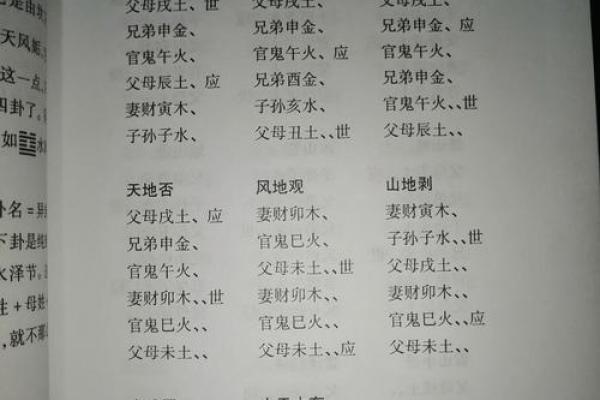 天风姤
这一点，
四卦了。
如
卦名＝异
下卦是纯
水泽节。
性＋母姓
，就不那
父母戌土、世
兄弟申金、
官鬼午火、
父母辰土、应
妻财寅木、
子孙子水、
父母戌土、
兄弟申金、
官鬼午火、应
兄弟酉金、
子孙亥水、
父母丑土、、世
父母戌土、
兄弟申金、
官鬼午火、
兄弟申金、
官鬼午火、、世
父母辰土、、
天地否
父母戌土、应
兄弟申金、
官鬼午火、
妻财卯木、、世
官鬼巳火、、
父母未土、、
风地观
妻财卯木、
官鬼巳火、
父母未土、、世
妻财卯木、、
官鬼巳火、、
父母未土、、应
山地剥
妻财寅木、
子孙子水、、世
父母戌土、、
妻财卯木、、
官鬼巳火、、应
父母未土、、